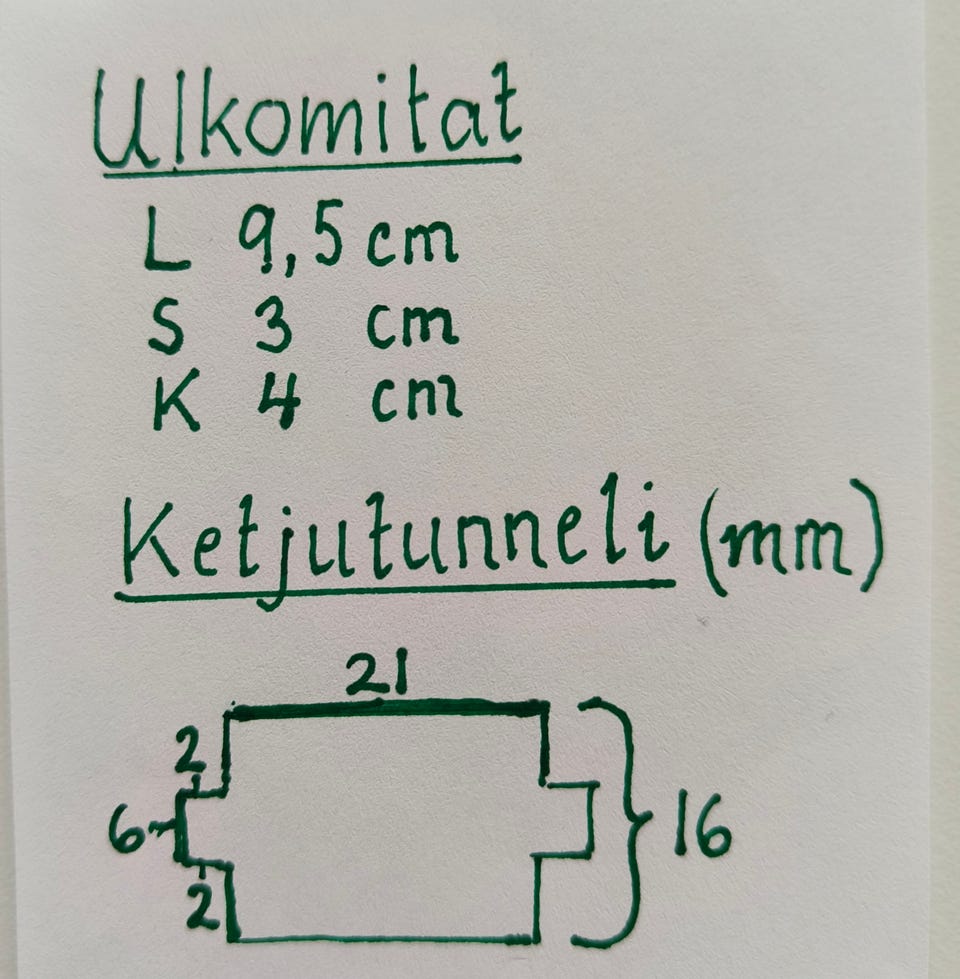 Ulkomitat
L 9,5 cm
S 3 cm
K 4 cm
Ketjutunneli (mm)
21
2
6
16
2